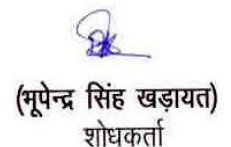 (भूपेन्द्र सिंह खड़ायत)
शोधकर्ता